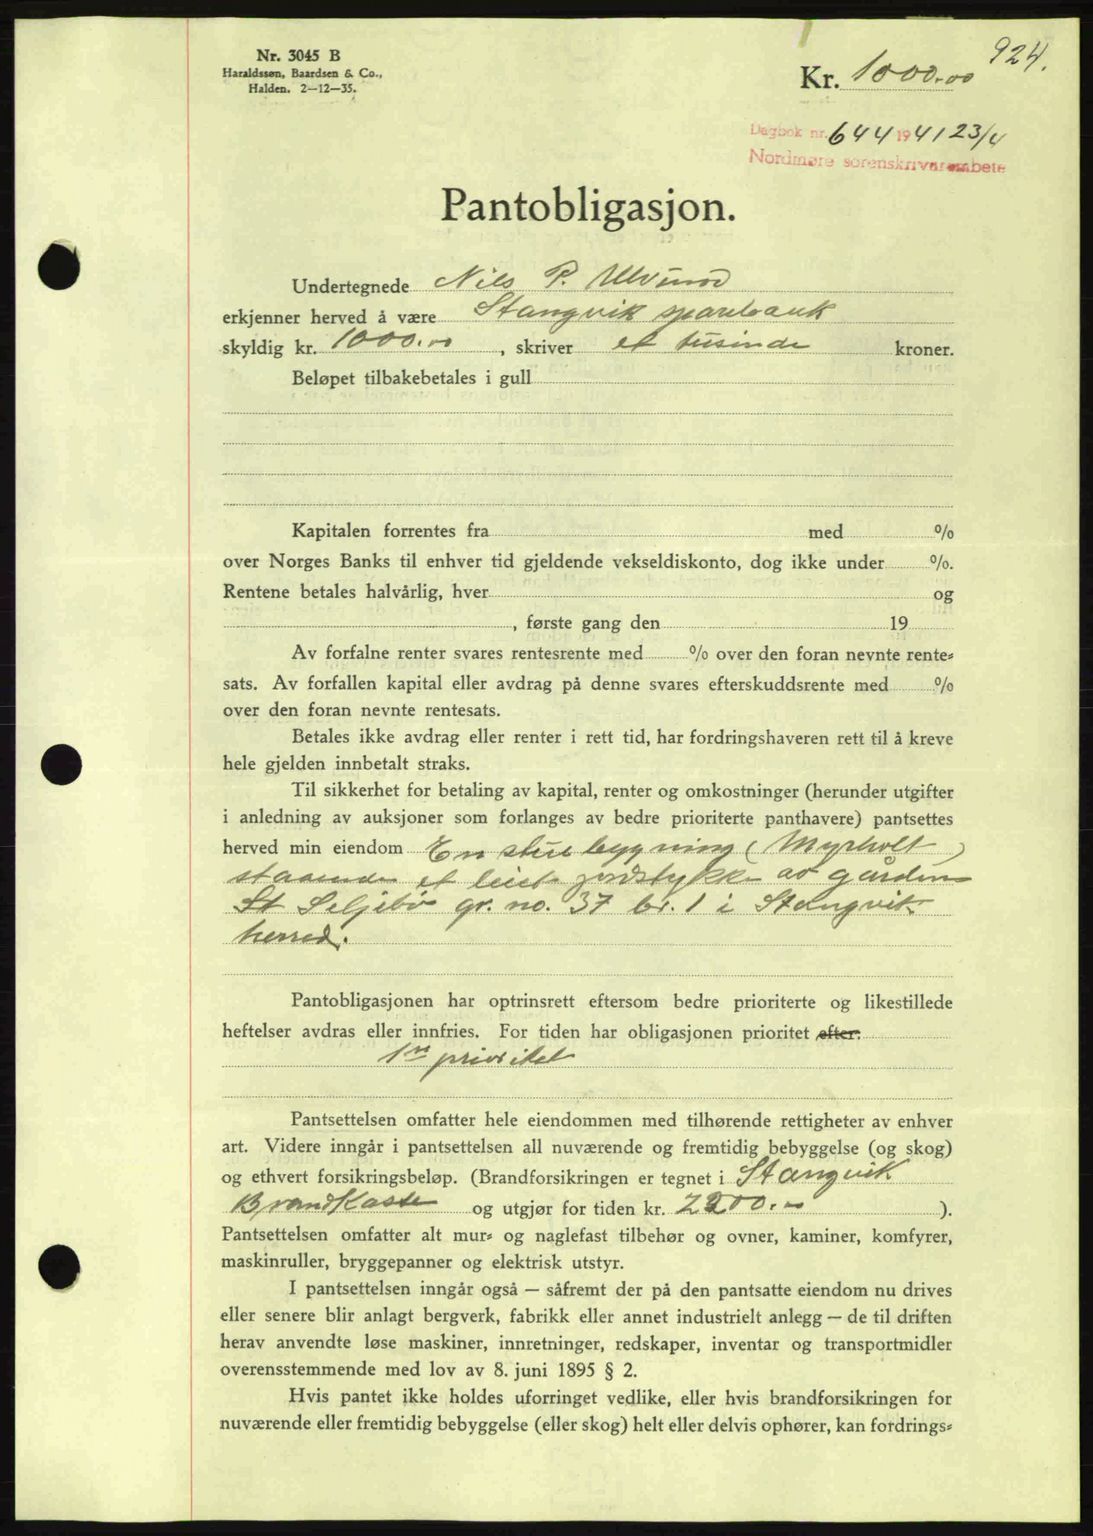 924.
Nr. 3045 B
Haraldssøn, Baardsen & Co.,
Halden. 2—12—35.
Kr. 1000.00
Dagbok nr. 644 1941 23/4
Nordmøre sorenskrivarembete
Pantobligasjon.
Undertegnede Nils P. Ulvund
erkjenner herved å være Stangvik sparebank
skyldig kr. 1000.00, skriver et tusinde kroner.
Beløpet tilbakebetales i gull
Kapitalen forrentes fra med %
over Norges Banks til enhver tid gjeldende vekseldiskonto, dog ikke under %.
Rentene betales halvårlig, hver og
, første gang den 19
Av forfalne renter svares rentesrente med % over den foran nevnte rente-
sats. Av forfallen kapital eller avdrag på denne svares efterskuddsrente med %
over den foran nevnte rentesats.
Betales ikke avdrag eller renter i rett tid, har fordringshaveren rett til å kreve
hele gjelden innbetalt straks.
Til sikkerhet for betaling av kapital, renter og omkostninger (herunder utgifter
i anledning av auksjoner som forlanges av bedre prioriterte panthavere) pantsettes
herved min eiendom En stuebygning (Myrholt)
staaende et leiet jordstykke av gården
St Seljebö gr. no. 37 br. 1 i Stangvik
herred.
Pantobligasjonen har optrinsrett eftersom bedre prioriterte og likestillede
heftelser avdras eller innfries. For tiden har obligasjonen prioritet efter:
1ste prioritet
Pantsettelsen omfatter hele eiendommen med tilhørende rettigheter av enhver
art. Videre inngår i pantsettelsen all nuværende og fremtidig bebyggelse (og skog)
og ethvert forsikringsbeløp. (Brandforsikringen er tegnet i Stangvik
Brandkasse og utgjør for tiden kr. 2200.00 ).
Pantsettelsen omfatter alt mur- og naglefast tilbehør og ovner, kaminer, komfyrer,
maskinruller, bryggepanner og elektrisk utstyr.
I pantsettelsen inngår også — såfremt der på den pantsatte eiendom nu drives
eller senere blir anlagt bergverk, fabrikk eller annet industrielt anlegg — de til driften
herav anvendte løse maskiner, innretninger, redskaper, inventar og transportmidler
overensstemmende med lov av 8. juni 1895 § 2.
Hvis pantet ikke holdes uforringet vedlike, eller hvis brandforsikringen for
nuværende eller fremtidig bebyggelse (eller skog) helt eller delvis ophører, kan fordrings-